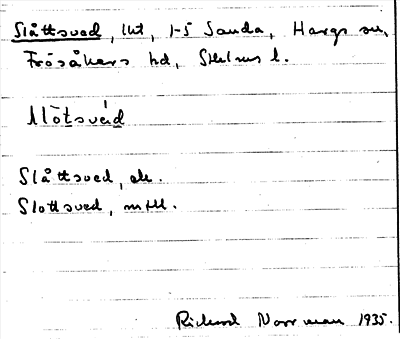 Slåttsved, lht, 1-5 Sanda, Hargs sn,
Frösåkers hd, Sthlms l.
Slåttsved, ek.
Slottsved, mtll.
Richard Norrman 1935.